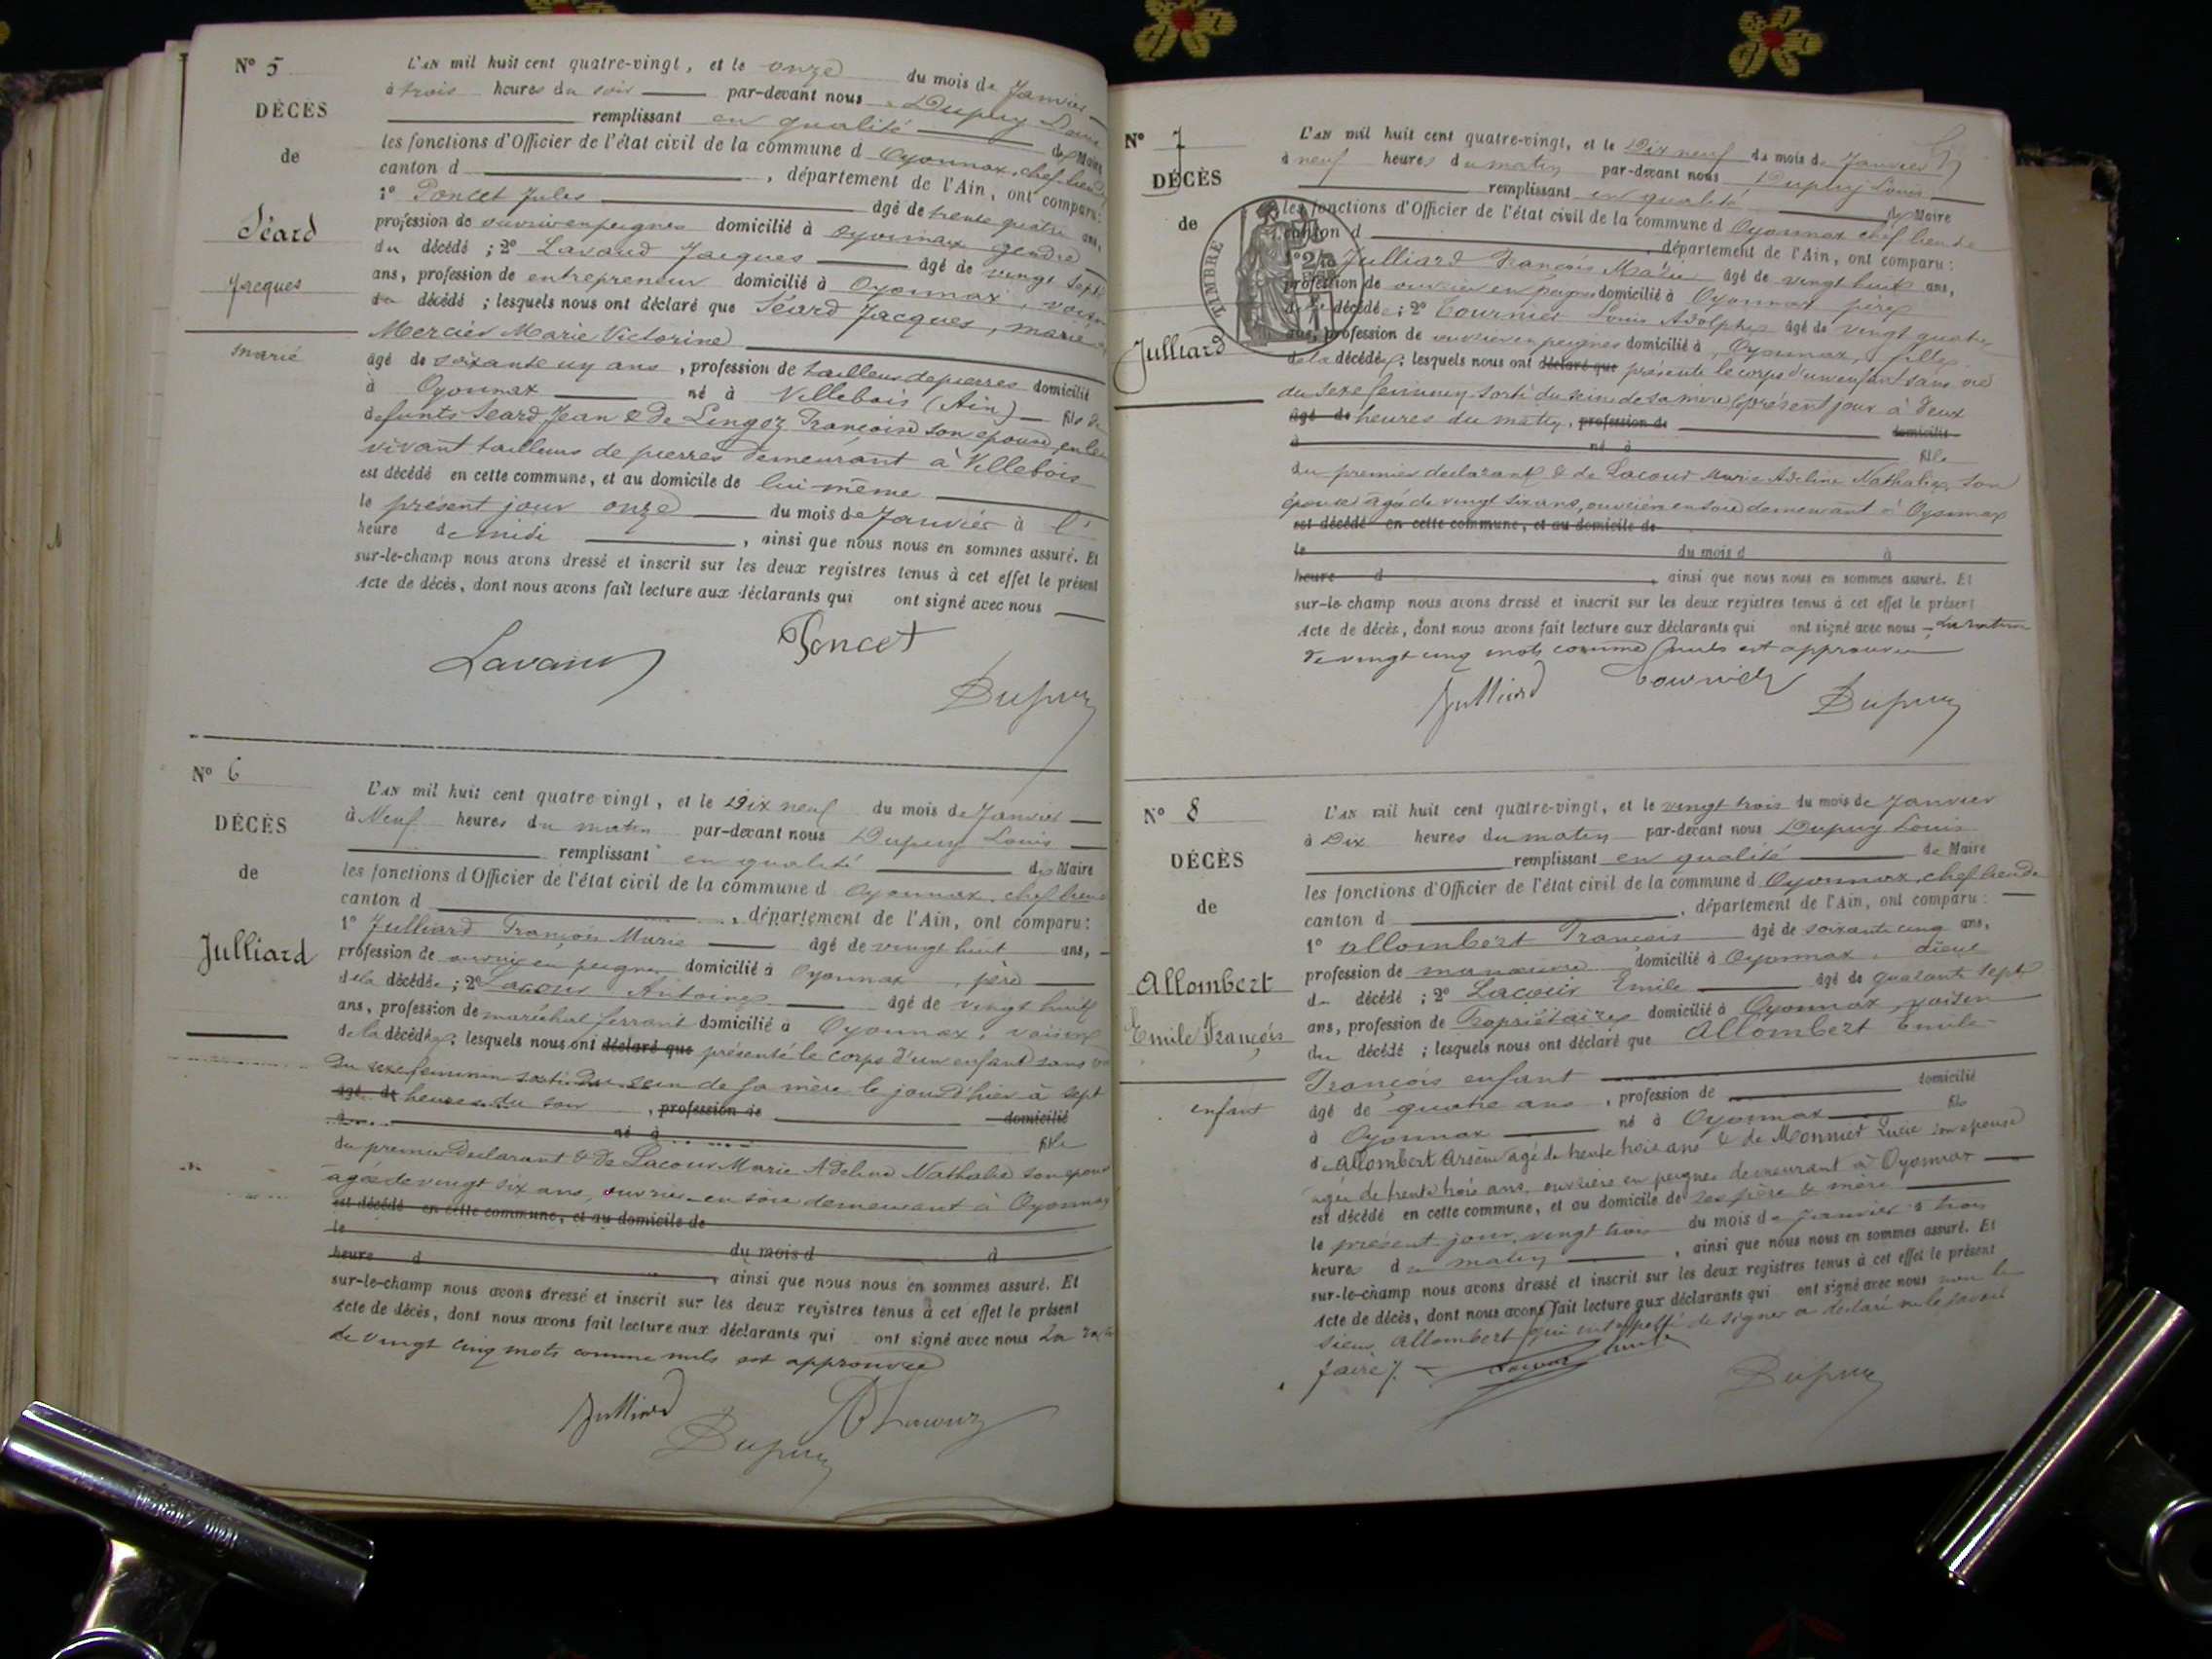 N° 5
DÉCÈS
de
Séard
Jacques
marié
L'AN mil huit cent quatre-vingt, et le onze du mois de Janvier
à trois heures du soir par-devant nous Dupuy Louis
remplissant en qualité de Maire
les fonctions d'Officier de l'état civil de la commune d Oyonnax, chef lieu de
canton d , département de l'Ain, ont comparu:
1° Poncet Jules âgé de trente quatre ans,
profession de ouvrier en peignes domicilié à Oyonnax gendre
du décédé ; 2° Lavaud Jacques âgé de vingt sept
ans, profession de entrepreneur domicilié à Oyonnax, voisin
du décédé ; lesquels nous ont déclaré que Séard Jacques, marié à
Mercier Marie Victorine
âgé de soixante un ans , profession de tailleur de pierres domicilié
à Oyonnax né à Villebois (Ain) fils de
défunts Seard Jean & de Lingoz Françoise son épouse, en leur
vivant tailleurs de pierres demeurant à Villebois
est décédé en cette commune, et au domicile de lui-même
le présent jour onze du mois de Janvier à l'
heure de midi , ainsi que nous nous en sommes assuré. Et
sur-le-champ nous avons dressé et inscrit sur les deux registres tenus à cet effet le présent
Acte de décès, dont nous avons fait lecture aux déclarants qui ont signé avec nous
Lavaud
Poncet
Dupuy
N° 6
DÉCÈS
de
Julliard
L'AN mil huit cent quatre-vingt, et le Dix neuf du mois de Janvier
à Neuf heures du matin par-devant nous Dupuy Louis
remplissant en qualité de Maire
les fonctions d'Officier de l'état civil de la commune d Oyonnax, chef lieu de
canton d , département de l'Ain, ont comparu:
1° Julliard François Marie âgé de vingt huit ans,
profession de ouvrier en peignes domicilié à Oyonnax, père
de la décédée ; 2° Lacour Antoine âgé de vingt huit
ans, profession de maréchal ferrant domicilié à Oyonnax, voisin
de la décédée ; lesquels nous ont déclaré que présenté le corps d'un enfant sans vie
du sexe féminin sorti du sein de sa mère le jour d'hier à sept
âgé de heures du soir , profession de domicilié
à né à fille
du premier Déclarant & de Lacour Marie Adeline Nathalie son épouse
âgée de vingt six ans, ouvrière en soie demeurant à Oyonnax
est décédé en cette commune, et au domicile de
le du mois d à
heure d , ainsi que nous nous en sommes assuré. Et
sur-le-champ nous avons dressé et inscrit sur les deux registres tenus à cet effet le présent
Acte de décès, dont nous avons fait lecture aux déclarants qui ont signé avec nous La rature
de vingt cinq mots comme nuls est approuvée
Julliard
Dupuy
A Lacour
N° 7
DÉCÈS
de
Julliard
TIMBRE
L'AN mil huit cent quatre-vingt, et le Dix neuf du mois de Janvier
à neuf heures du matin par-devant nous Dupuy Louis
remplissant en qualité de Maire
les fonctions d'Officier de l'état civil de la commune d Oyonnax chef lieu de
canton d , département de l'Ain, ont comparu:
1° Julliard François Marie âgé de vingt huit ans,
profession de ouvrier en peignes domicilié à Oyonnax père
de la décédée ; 2° Tournier Louis Adolphe âgé de vingt quatre
ans, profession de ouvrier en peignes domicilié à Oyonnax,
de la décédée ; lesquels nous ont déclaré que présenté le corps d'un enfant sans vie
du sexe féminin sorti du sein de sa mère le présent jour à deux
âgé de heures du matin, profession de domicilié
à né à fille
du premier déclarant & de Lacour Marie Adeline Nathalie, son
épouse âgée de vingt six ans, ouvrière en soie demeurant à Oyonnax
est décédé en cette commune, et au domicile de
le du mois d à
heure d , ainsi que nous nous en sommes assuré. Et
sur-le-champ nous avons dressé et inscrit sur les deux registres tenus à cet effet le présent
Acte de décès, dont nous avons fait lecture aux déclarants qui ont signé avec nous La rature
de vingt cinq mots comme nuls est approuvée
Julliard
Tournier
Dupuy
N° 8
DÉCÈS
de
Allombert
Emile François
enfant
L'AN mil huit cent quatre-vingt, et le vingt trois du mois de Janvier
à Dix heures du matin par-devant nous Dupuy Louis
remplissant en qualité de Maire
les fonctions d'Officier de l'état civil de la commune d Oyonnax, chef lieu de
canton d , département de l'Ain, ont comparu:
1° Allombert François âgé de soixante cinq ans,
profession de manoeuvre domicilié à Oyonnax, aïeul
du décédé ; 2° Lacour Emile âgé de quarante sept
ans, profession de Propriétaire domicilié à Oyonnax, voisin
du décédé ; lesquels nous ont déclaré que Allombert Emile
François enfant
âgé de quatre ans , profession de domicilié
à Oyonnax né à Oyonnax fils
d'Allombert Arsène agé de trente trois ans & de Monnier Lucie son épouse
agée de trente trois ans, ouvriers en peignes demeurant à Oyonnax
est décédé en cette commune, et au domicile de ses père & mère
le présent jour vingt trois du mois de Janvier à trois
heures du matin , ainsi que nous nous en sommes assuré. Et
sur-le-champ nous avons dressé et inscrit sur les deux registres tenus à cet effet le présent
Acte de décès, dont nous avons fait lecture aux déclarants qui ont signé avec nous non le
sieur Allombert qui interpellé de signer a déclaré ne le savoir
faire
Lacour Emile
Dupuy